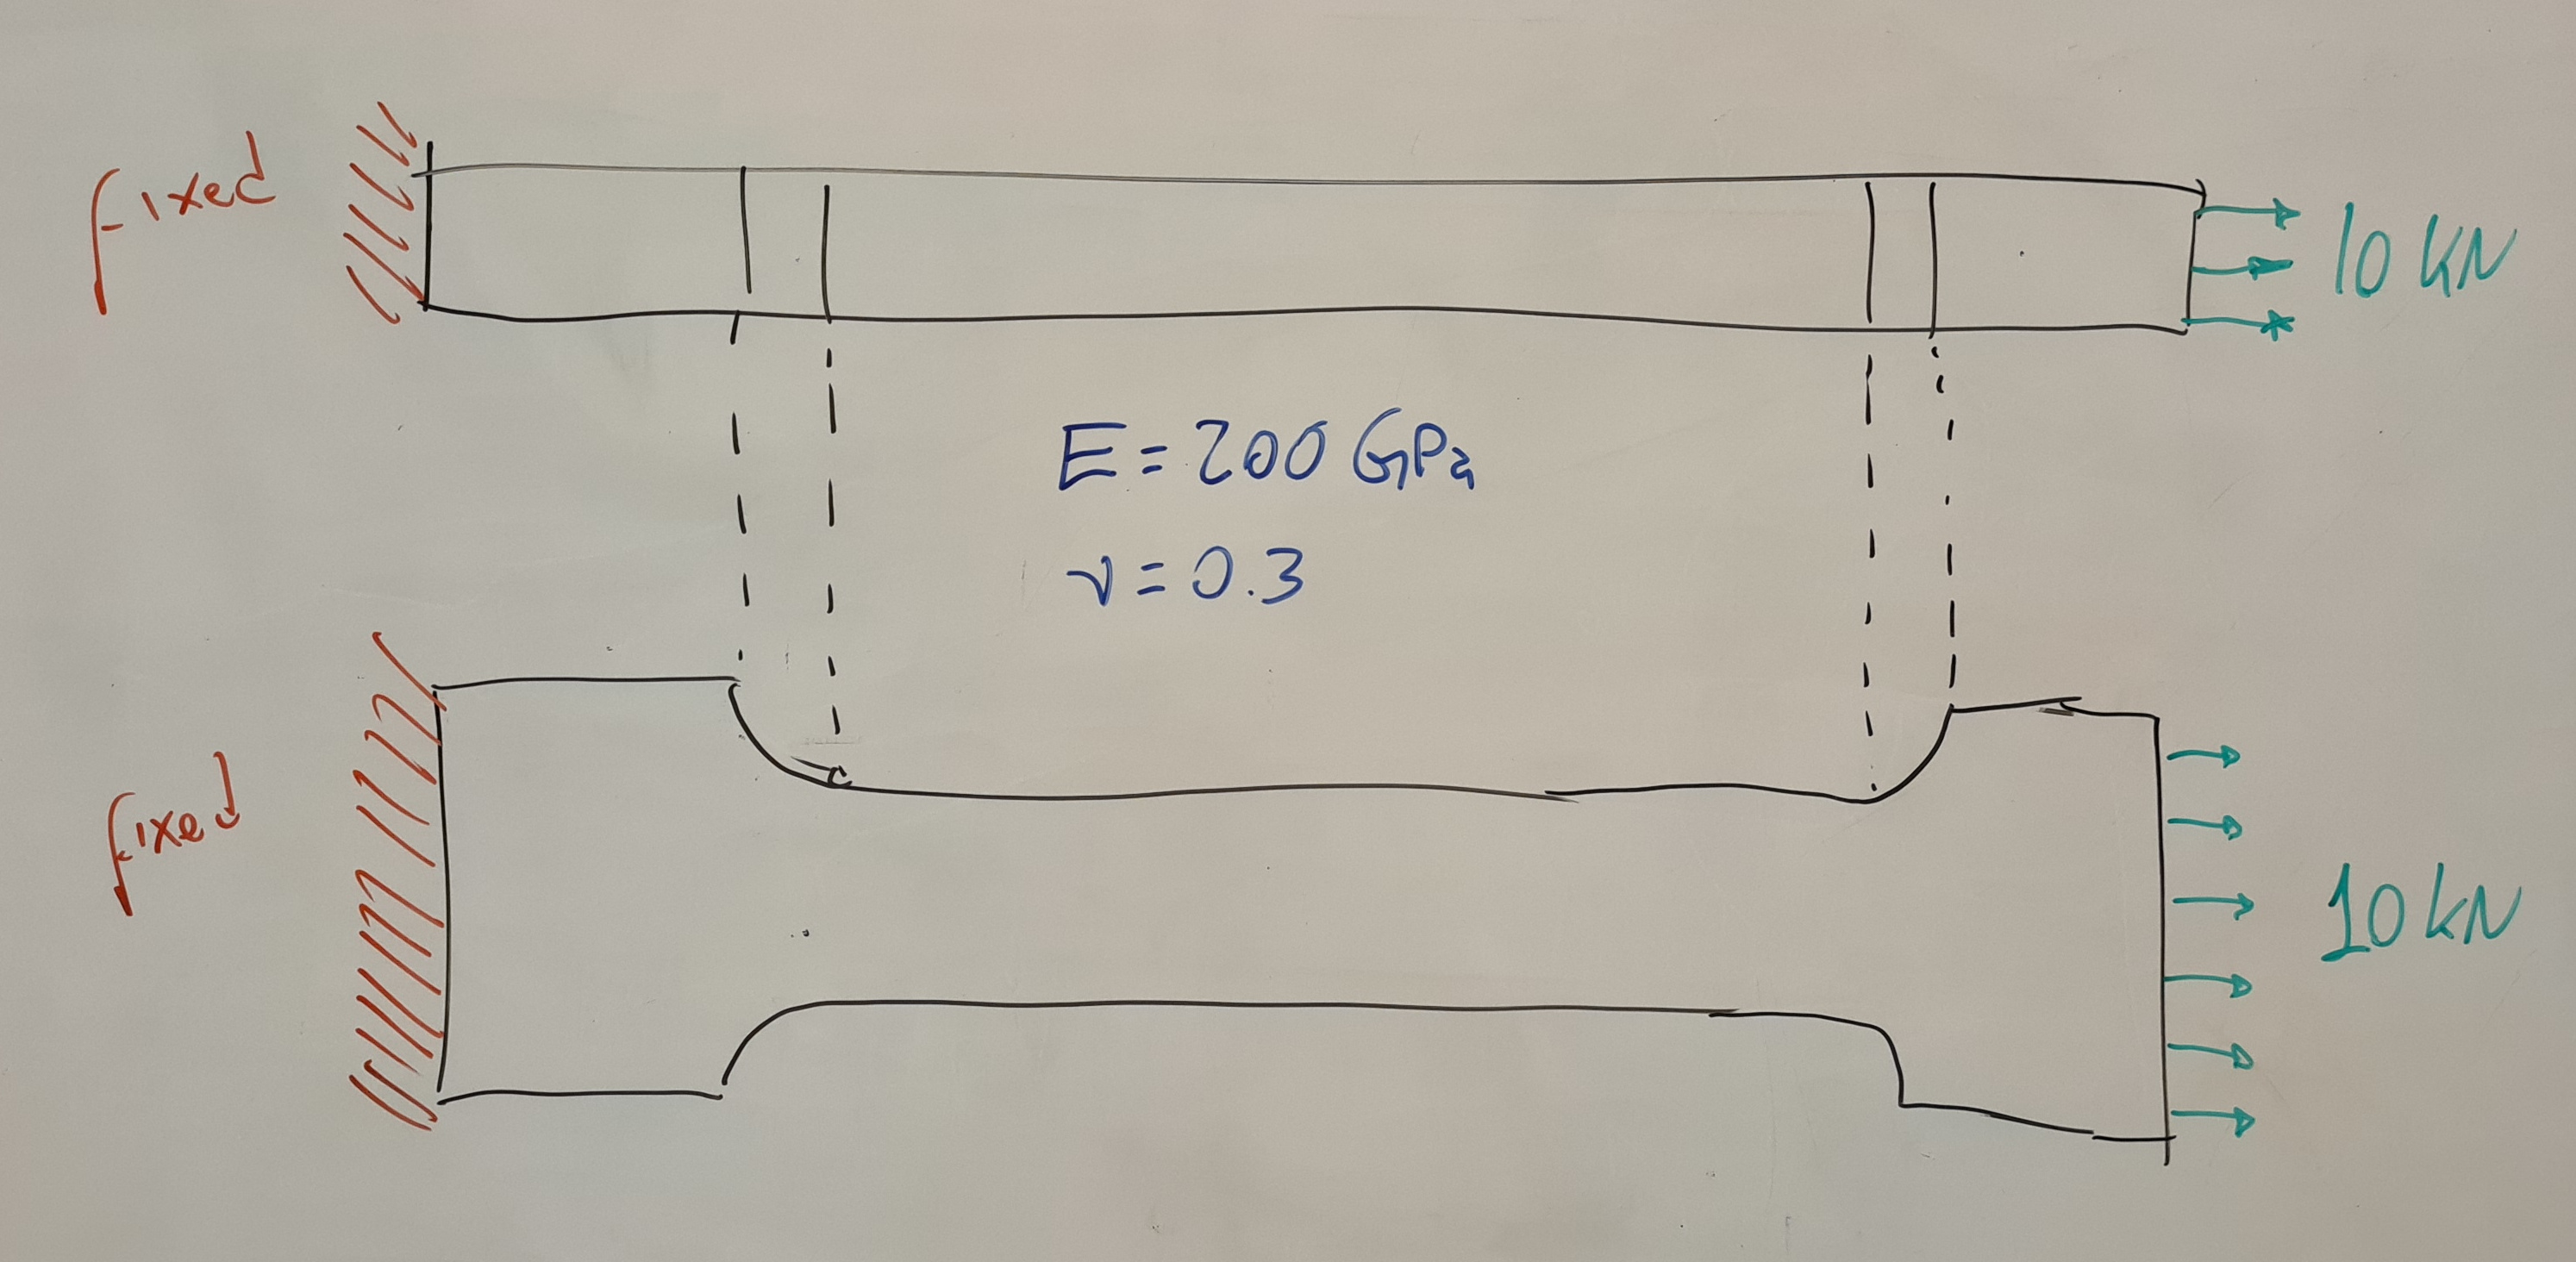 fixed
10 KN
E = 200 GPa
ν = 0.3
fixed
10 kN